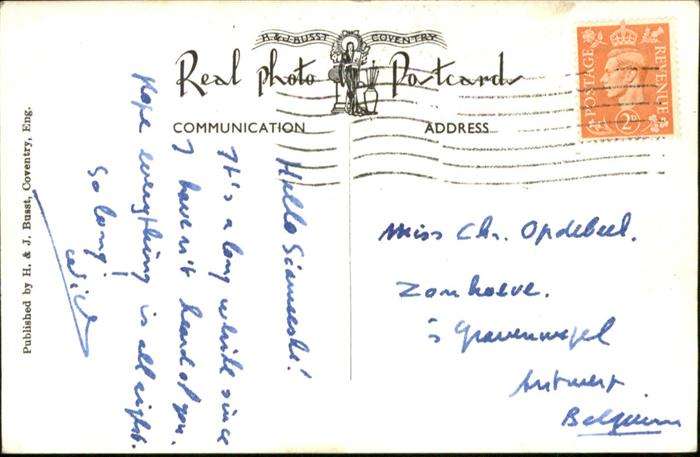 H. & J. BUSST COVENTRY
Real photo Postcard
COMMUNICATION
ADDRESS
POSTAGE
REVENUE
2D
Published by H. & J. Busst, Coventry, Eng.
Hello
It's a long while since
I haven't heard of you.
Hope everything is all right.
So long!
Miss Chr. Opdebeek.
Zonhoeve.
's Gravenwezel
Antwerp
Belgium